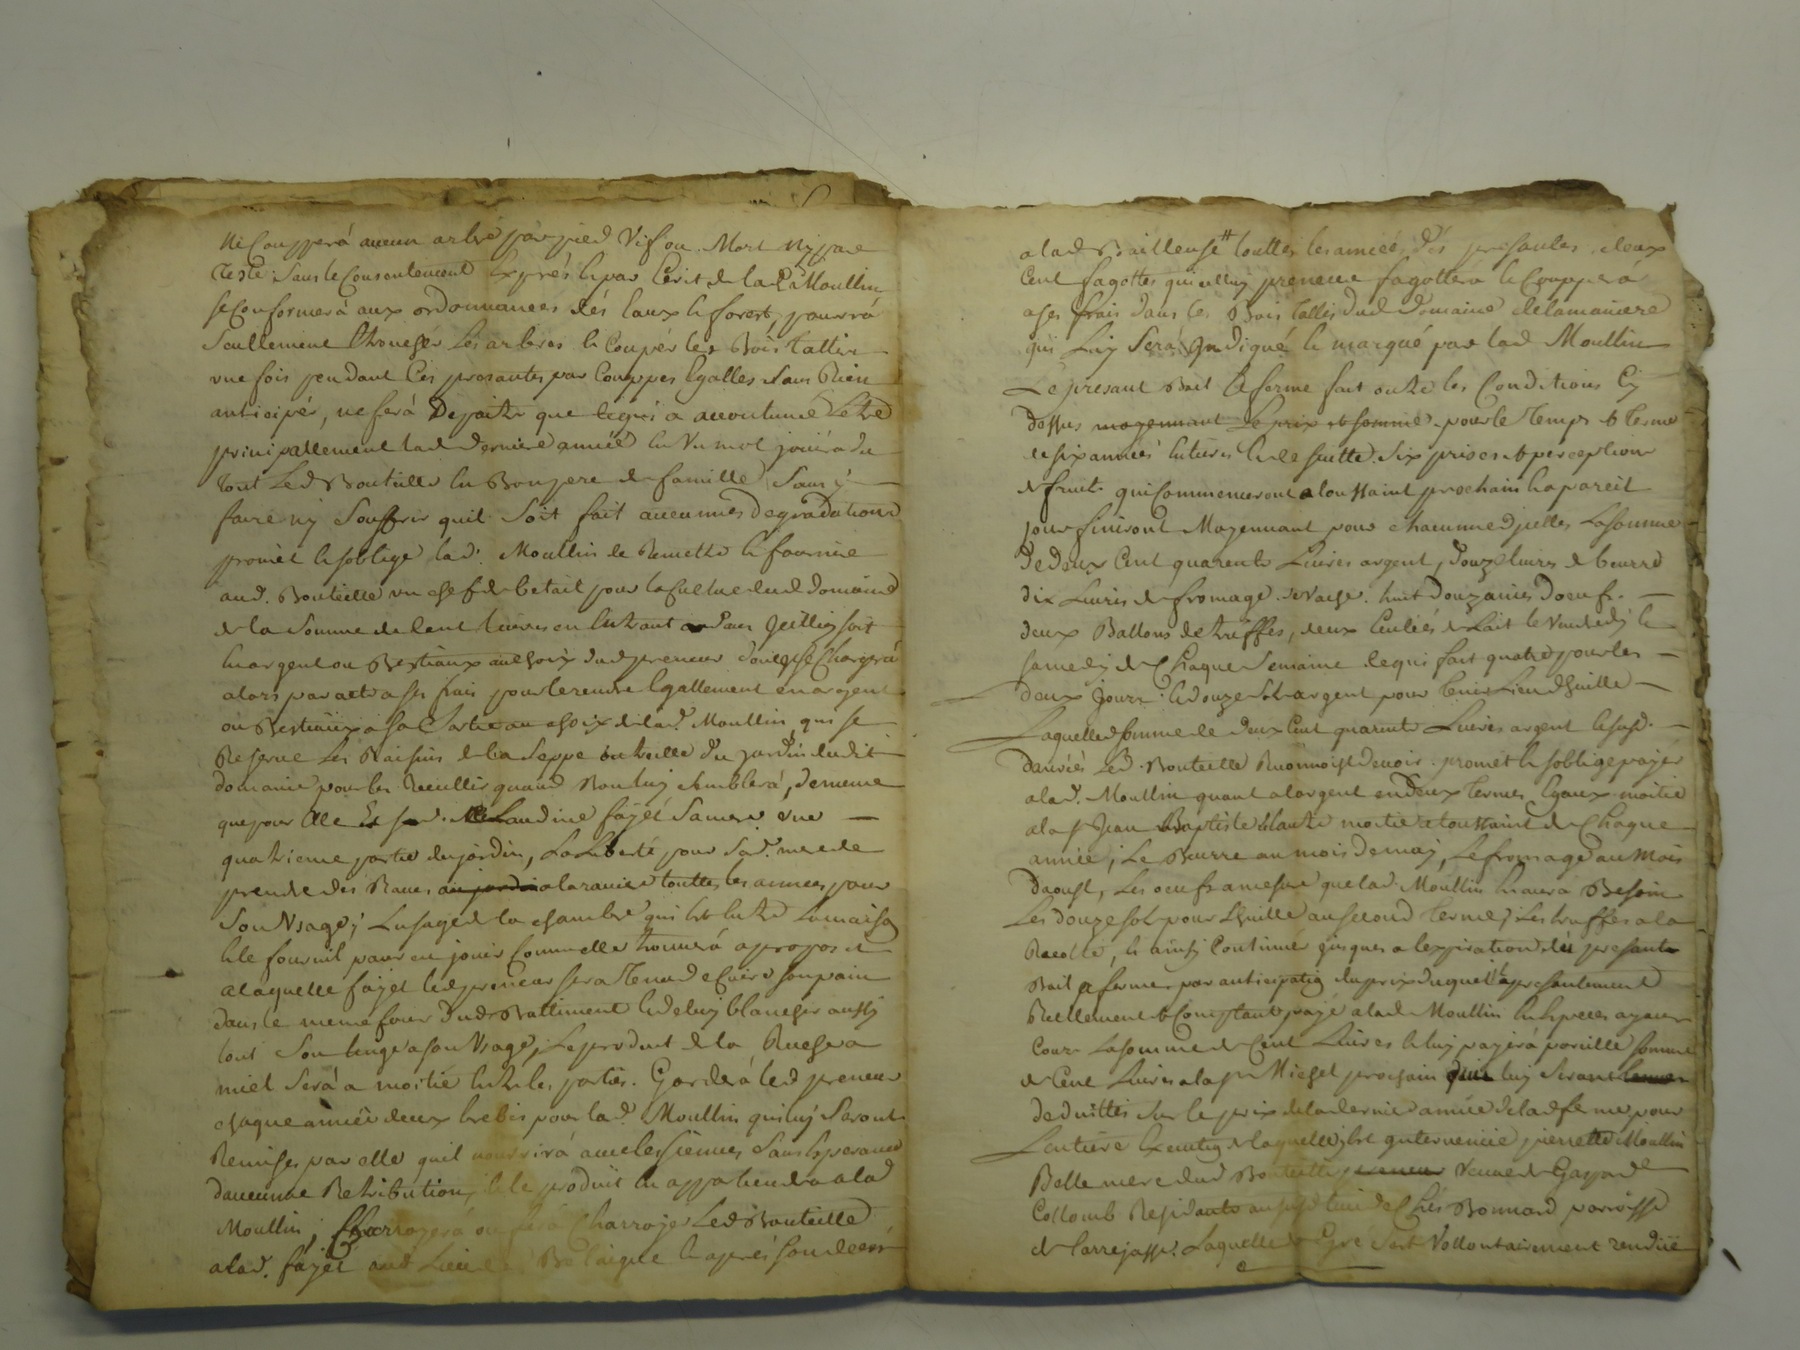 ni Coupperá aucun arbre par pied Vif ou Mort ny par
teste Sans le Consentement Exprés & par Ecrit de lad Moullin
se Conformerá aux ordonnances dés Eaux & forest, pourrá
Seullement les arbres & Coupér les Bois tallis
une fois pendant Ces presantes par Couppes Egalles Sans Rien
anticipér, ne ferá que de accoutumé Létre
principallement lad derniere année En Un mot jouirá du
tout Led Bouteille En Bon pere de famille Sans y
faire ny Souffrir quil Soit fait aucunnes degradations
promet & soblige lad. Moullin de Remettre & fournir
aud. Bouteille un chef de betail pour la Culture dud domaine
de la Somme de Cent Livres en Entrant dans soit
En argent ou Bestiaux au choix dud preneur se Chargerá
alors par acte a ses frais pour le rendre Egallement en argent
ou Bestiaux a sa Sortie au choix de lad. Moullin, qui se
Reserve Les Raisins de la Seppe ou treille du jardin dudit
domaine pour les Recuillir quand Bon luy Semblerá, de meme
que pour Claudine fayét Sa mere une
quatrieme partie du jardin, La Liberté pour Sad. mere de
prendre des Raves a la raviere touttes les années pour
Son Usage; Lusage de la chambre qui Est Entre La maison
& le fournil pour en jouir Comme elle trouverá apropos et
a laquelle fayét led preneur sera Tenu de Cuire Son pain
dans le meme four dud Battiment & de luy blanchir aussy
tout Son linge a son Usage, Le produit de la Ruche a
miel Será a moitié Entre les parties. Garderá led preneur
chaque année deux brebis pour lad. Moullin qui luy Seront
Remises par elle quil nourrirá avec les siennes Sans Esperance
daucunne Retribution, & le produit En appartiendra a lad
Moullin; Charroyerá ou ferá Charroyér Led Bouteille
a lad. fayét aud Lieu de & aprés Son decés
a lad Bailleuse # touttes les années dés presantes deux
Cent fagottes que led preneur fagotterá & Coupperá
a ses frais dans les Bois tallis dud Domaine de la maniere
qui Luy Será Indiqué & marqué par lad Moullin
Le presant Bail a ferme fait outre les Conditions Cy
dessus moyennant Le prix et Somme pour le Temps & terme
de six années Entieres & de suitte Six prises & perceptions
de fruits qui Commenceront a toussaint prochain & a pareil
jour finiront Moyennant pour chacunne dicelles La Somme
de deux Cent quarente Livres argent, douze Livres de beurre
dix Livres de fromage de Vache, huit douzaines doeufs.
deux Ballons de treffes, deux de Lait le Vendredy &
Samedy de Chaque Semaine ce qui fait quatre pour les
deux jours & douze Sols argent pour tenir Lieu dhuille
Laquelle Somme de deux Cent quarent Livres argent & susd.
danrées Led. Bouteille Reconnoist devoir, promet & soblige payér
a lad. Moullin quant a largent en deux termes Egaux moitié
a la St Jean Baptiste & lautre moitié a toussaint de Chaque
année; Le Beurre au mois de may, Le fromage au Mois
daoust, Les oeufs a mesure que lad Moullin En aurá Besoin
Les douze sols pour Lhuille au second terme; Les truffés a la
Recolte, & ainsy Continuér jusques a lexpiration du presant
Bail a ferme par anticipation du prix duquel Il a presantement
Reellement & Comptant payé a lad Moullin En Especes ayant
Cours La Somme de Cent Livres & luy payerá pareille Somme
de Cent Livres a la St Michel prochain qui luy Seront
deduittes sur le prix de la derniere année de lad ferme, pour
Lentiere Execution de laquelle y Est Intervenüe pierrette Moullin
Belle mere dud Bouteille Veuve de Gaspard
Collomb Residante au sud lieu de Chés Bonnard parroisse
de Larrajasse, Laquelle de Gré Sest Vollontairement rendüe